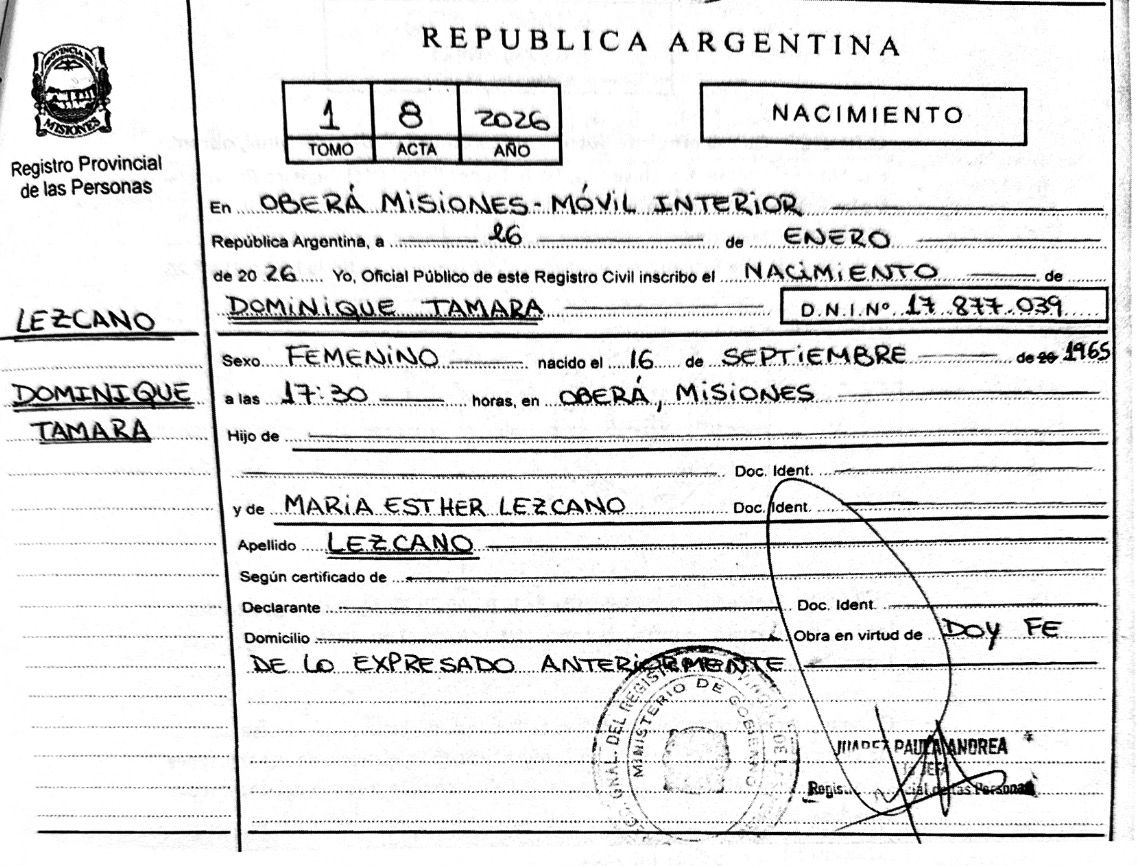 REPUBLICA ARGENTINA
PROVINCIA DE
MISIONES
Registro Provincial
de las Personas
1 8 2026
TOMO ACTA AÑO
NACIMIENTO
En OBERÁ MISIONES - MÓVIL INTERIOR
República Argentina, a 26 de ENERO
de 20 26 Yo, Oficial Público de este Registro Civil inscribo el NACIMIENTO de
DOMINIQUE TAMARA D.N.I.Nº 17.877.039
LEZCANO
DOMINIQUE
TAMARA
Sexo FEMENINO nacido el 16 de SEPTIEMBRE de 20 1965
a las 17:30 horas, en OBERÁ, MISIONES
Hijo de
Doc. Ident.
y de MARIA ESTHER LEZCANO Doc. Ident.
Apellido LEZCANO
Según certificado de
Declarante Doc. Ident.
Domicilio Obra en virtud de DOY FE
DE LO EXPRESADO ANTERIORMENTE
GRAL. DEL REGISTRO
MINISTERIO DE GOBIERNO
JUAREZ PAULA ANDREA
JEFA
de las Personas